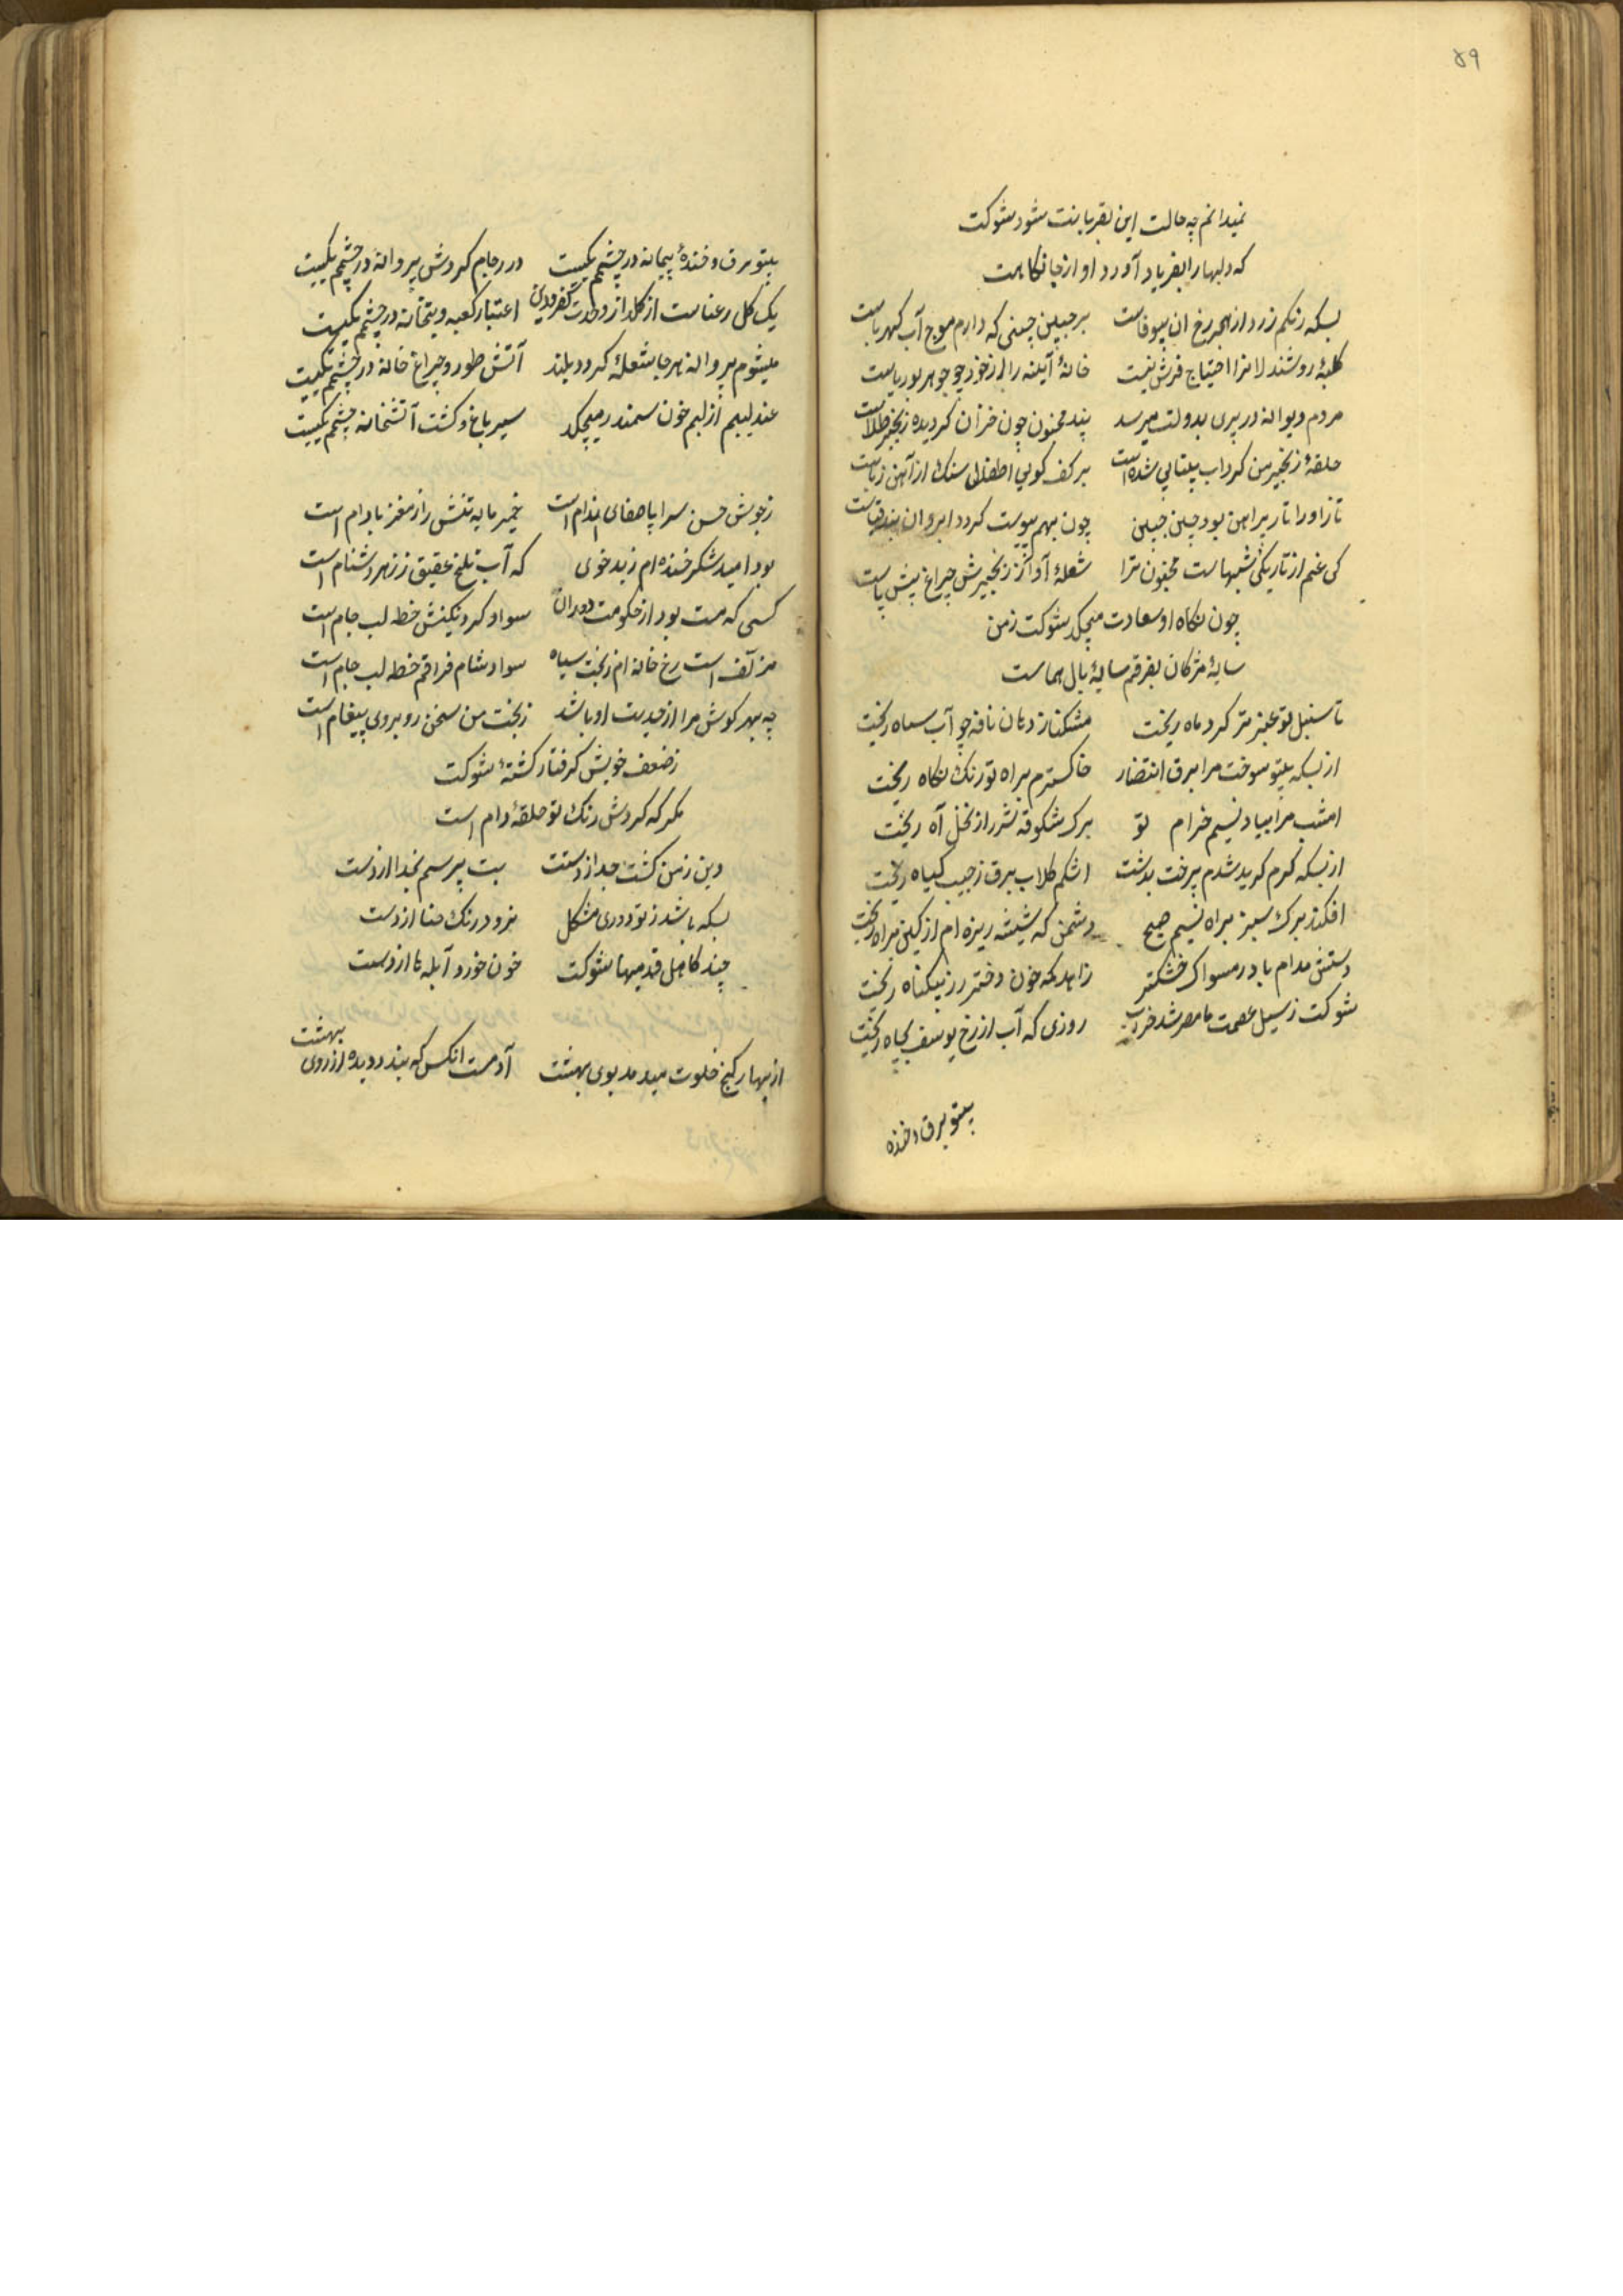 ۵۹
نمیدانم چه حالت این بقربانت شود شوکت
که دلبها را بفریاد آورد آواز جانکاهت
بسکه رنکم زرد از هجر رخ ان بیوفاست برجبین چینی که دارم موج آب کهرباست
کلبهٔ روشندلانرا احتیاج فرش نیست خانهٔ آیینه را از خود چو جوهر بوریاست
مردم دیوانه در پیری بدولت میرسد پند مجنون چون خزان کردیده زنجیر طلاست
حلقهٔ زنجیر من کرداب بیتابی شده است بر کف کویی اطفال سنک از آهن رباست
تار او را تار پیراهن بود چین جبین چون بهم پیوست کردد ابروان بند قباست
کی غم از تاریکی شبهاست مجنون ترا شعلهٔ آواز زنجیرش چراغ پیش پاست
چون نکاه او سعادت میچکد شوکت زمن
سایهٔ مژکان بفرقم سایهٔ بال هماست
تا سنبل تو عنبر تر کرد ماه ریخت مشکناز دهان نافه چو آب سیاه ریخت
از بسکه بیتو سوخت مرا برق انتظار خاکسترم براه تو رنک نکاه ریخت
امشب مرا بیاد نسیم خرام تو برک شکوفه شرر از نخل آه ریخت
از بسکه کرم کریه شدم پرخت بدشت اشکم کلاب برق زجیب کیاه ریخت
افکند برک سبز براه نسیم صبح دشمن که شیشه ریزه ام از کین براه ریخت
دستش مدام باد ر مسواک خشکتر زاهد که خون دختر رز بیکناه ریخت
شوکت ز سیل عصمت ما مصر شد خراب روزی که آب از رخ یوسف بچاه ریخت
بیتو برق و خنده
بیتو برق و خندهٔ پیمانه در چشمم یکیست در رجام کردش پروانه در چشمم یکیست
یک کل رعناست از کلزار وحدت کفر و دین اعتبار کعبه و بتخانه در چشمم یکیست
میشوم پروانه هرجا شعلهٔ کردد بلند آتش طور و چراغ خانه در چشمم یکیست
عندلیبم از لبم خون سمندر میچکد سیر باغ و کشت آتشخانه چشمم یکیست
زجوش حسن سراپا صفای اندام است خمیر مایه تنش را ز مغز بادام است
بود امید شکر خنده ام زبد خوی که آب تلخ عقیق ز زهر دشنام است
کسی که مست بود از حکومت دوران سواد کرد نکینش خط لب جام است
سیاه سواد شام فراقم خط لب جام است
چه بهر کوش مرا از حدیث او باشد زبخت من سخن روبروی پیغام است
زضعف خویش کرفتار کشتهٔ شوکت
مکر که کردش رنک تو حلقهٔ دام است
دین زمن کشت جدا از دستت بت پرستم بخدا از دست
بسکه باشد ز تو دوری مشکل نرود رنک حنا از دست
چند کاهل قدمیها شوکت خون خورد آبله پا از دست
از بهار کنج خلوت میدمد بوی بهشت آدمست انکس که بندد دیده از روی بهشت